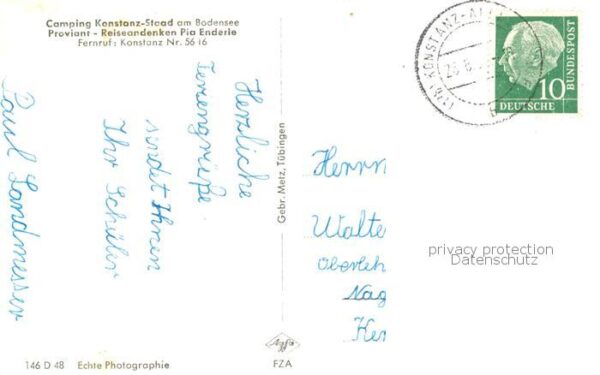 Camping Konstanz-Staad am Bodensee
Proviant - Reiseandenken Pia Enderle
Fernruf: Konstanz Nr. 5616
Herzliche
Feriengrüße
sendet Ihnen
Ihr Schüler
Paul Landmesser
Gebr. Metz, Tübingen
KONSTANZ
10
DEUTSCHE
BUNDESPOST
Herrn
Walte
Oberleh
Nag
Ker
privacy protection
Datenschutz
146 D 48 Echte Photographie
Agfa
FZA